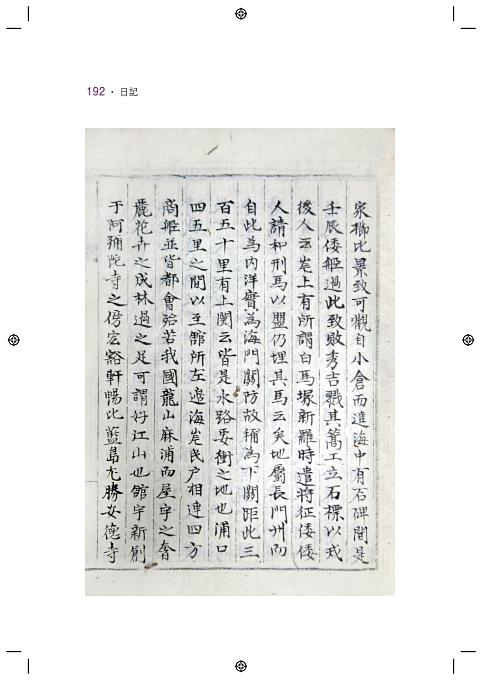 192 · 日記
家櫛比景致可觀自小倉而進海中有石碑間是
壬辰倭船過此致敗秀吉戮其篙工立石標以戒
後人云崖上有所謂白馬塚新羅時遣將征倭倭
人請和刑馬以盟仍埋其馬云矣地屬長門州而
自此為內洋實為海門關防故稱為下關距此三
百五十里有上関云皆是水路要衝之地也浦口
四五里之間以至舘所左邊海崖民戶相連四方
商船並皆都會殆若我國龍山麻浦而屋宇之奢
麗花卉之成林過之足可謂好江山也舘宇新創
于阿彌陀寺之傍宏豁軒暢比藍島尤勝安德寺